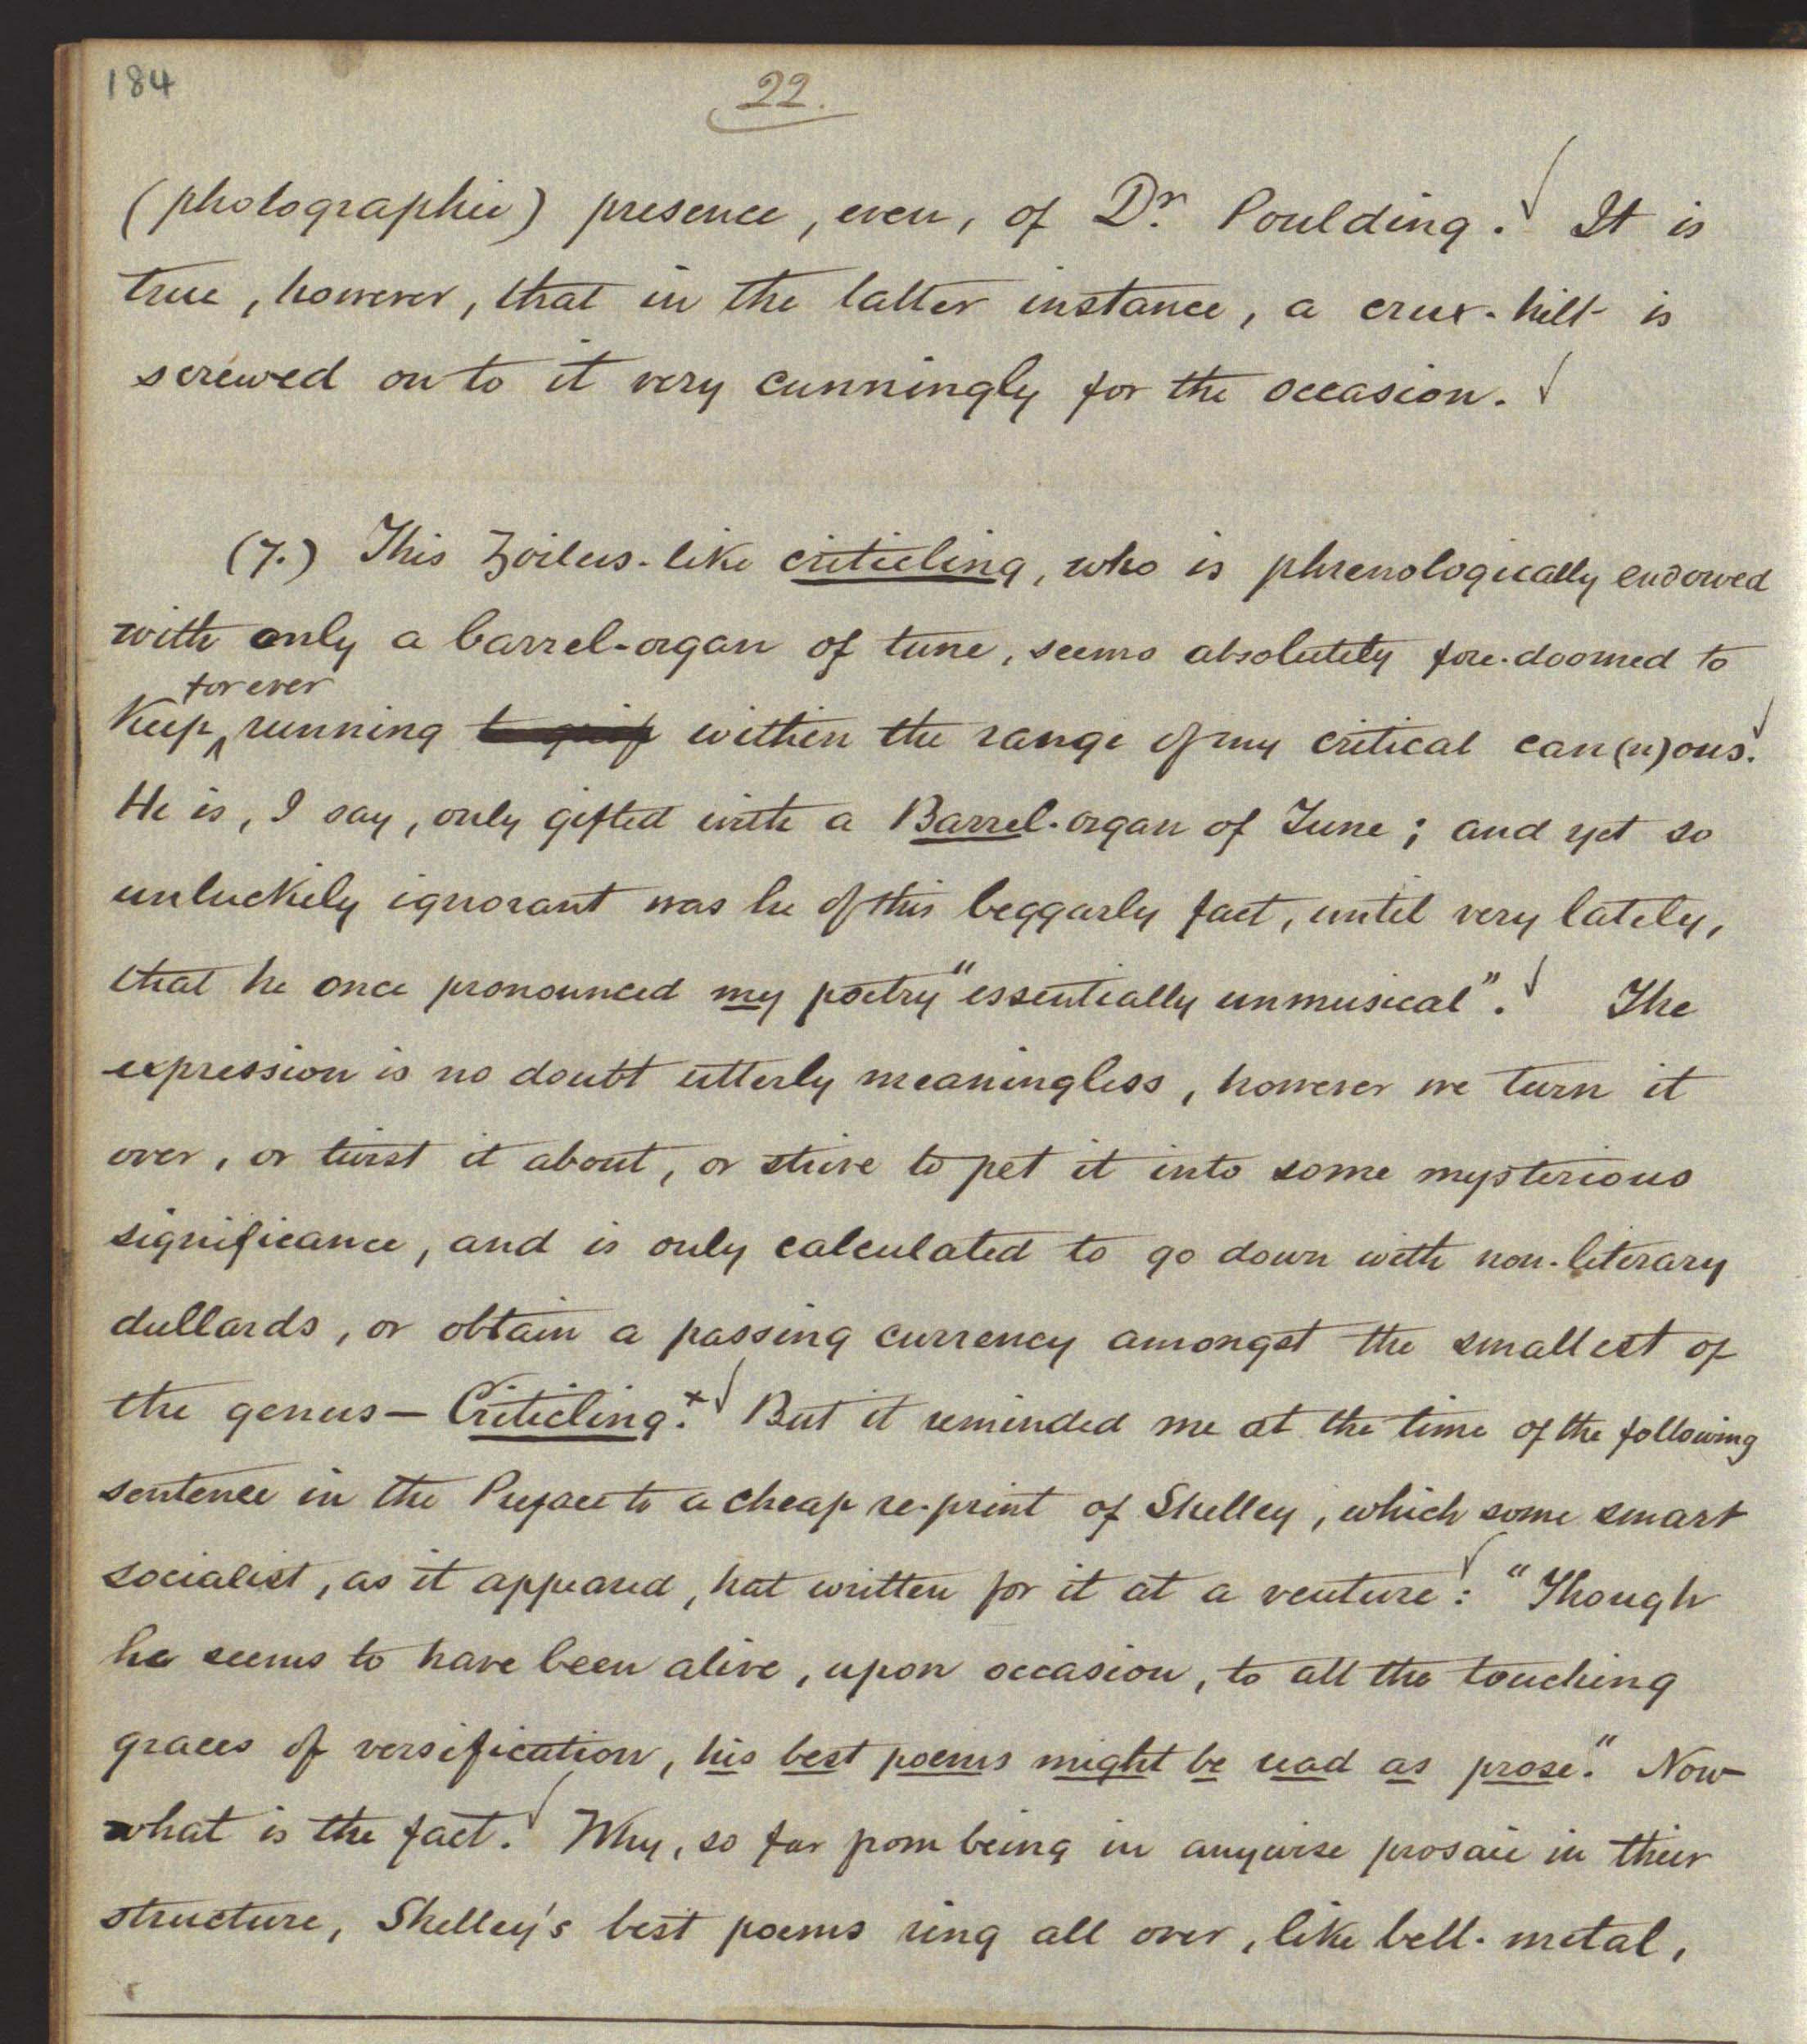 184
22.
(photographic) presence, even, of Dr. Poulding. It is
true, however, that in the latter instance, a crux-hilt is
screwed on to it very cunningly for the occasion.
(7.) This Zoilus-like criticling, who is phrenologically endowed
with only a barrel-organ of tune, seems absolutely fore-doomed to
for ever
keep running within the range of my critical can(n)ons.
He is, I say, only gifted with a Barrel-organ of Tune; and yet so
unluckily ignorant was he of this beggarly fact, until very lately,
that he once pronounced my poetry "essentially unmusical". The
expression is no doubt utterly meaningless, however we turn it
over, or twist it about, or strive to pet it into some mysterious
significance, and is only calculated to go down with non-literary
dullards, or obtain a passing currency amongst the smallest of
the genus — Criticling.x But it reminded me at the time of the following
sentence in the Preface to a cheap re-print of Shelley, which some smart
socialist, as it appeared, hat written for it at a venture: "Though
he seems to have been alive, upon occasion, to all the touching
graces of versification, his best poems might be read as prose." Now
what is the fact. Why, so far from being in anywise prosaic in their
structure, Shelley's best poems ring all over, like bell-metal,